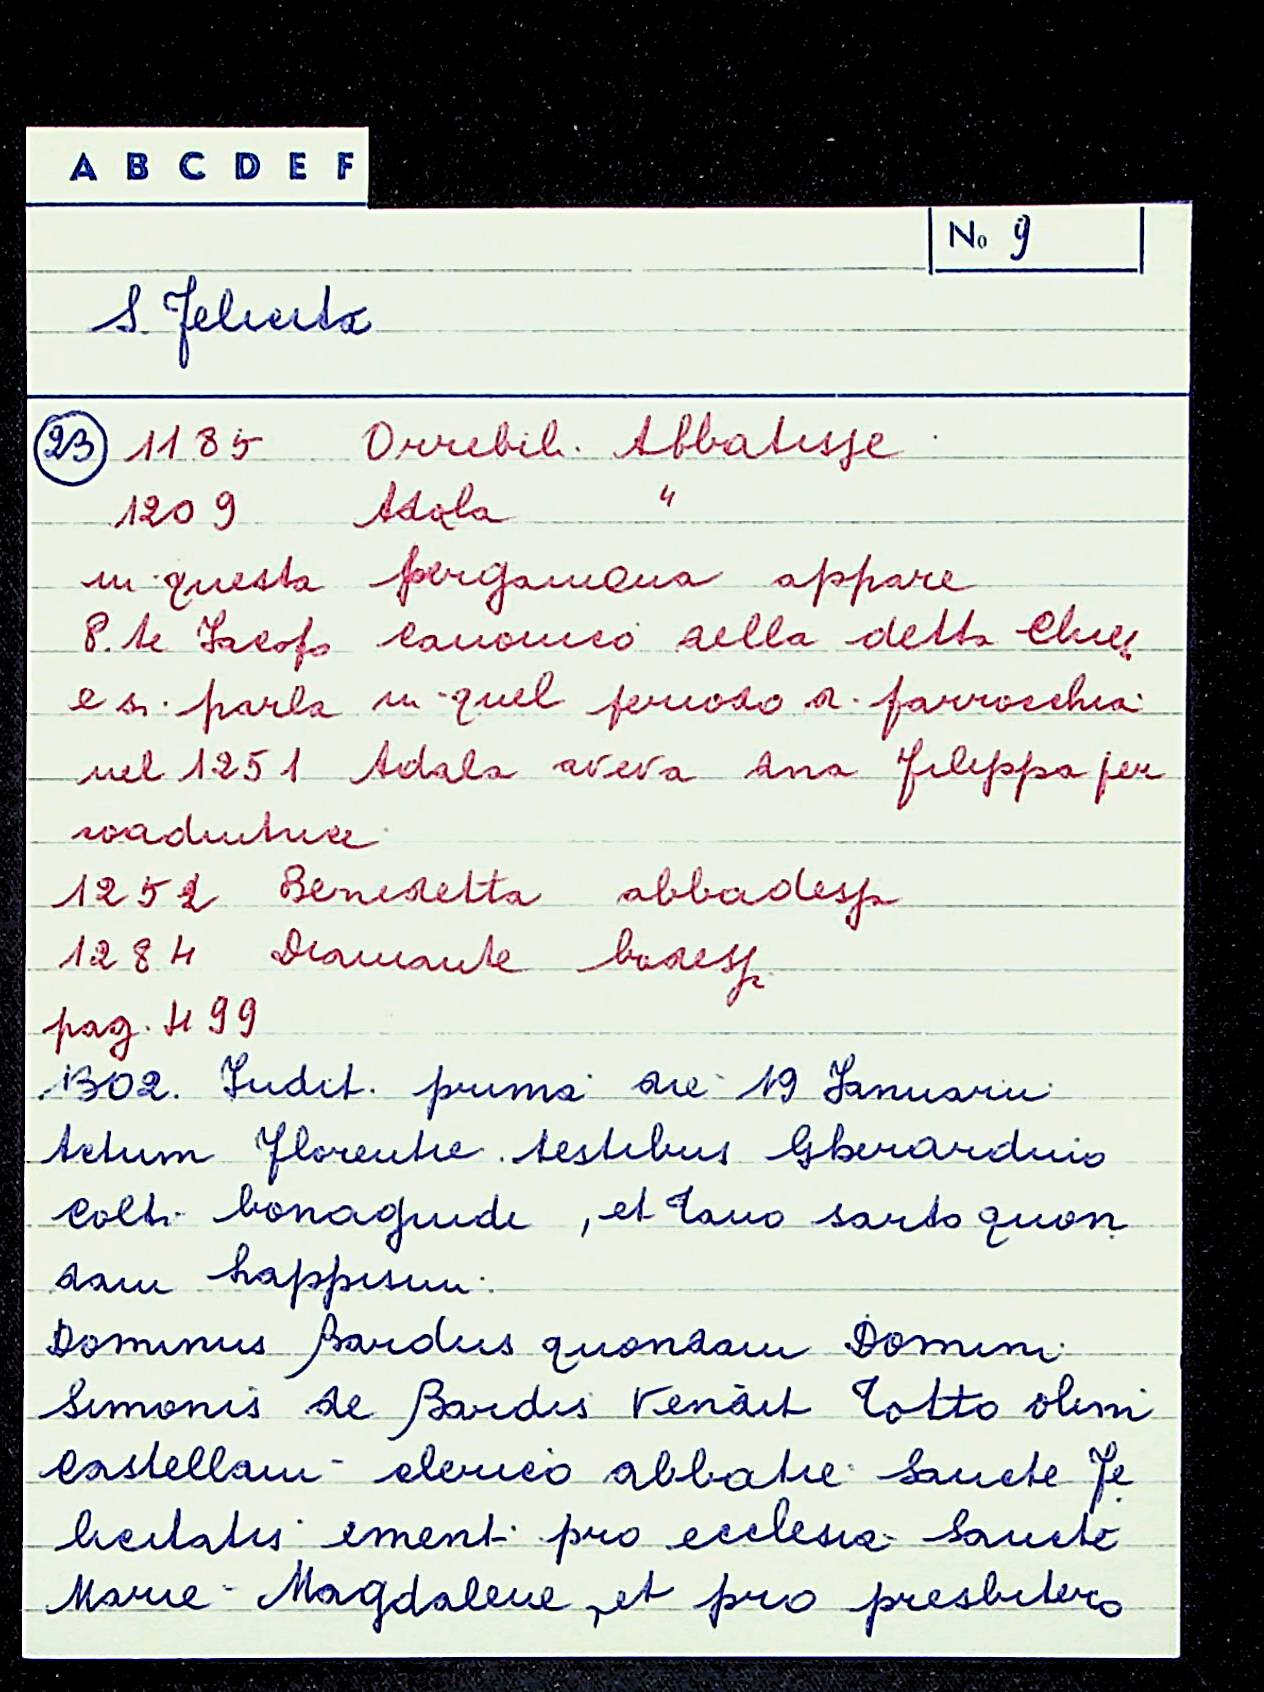 A B C D E F
No 9
S. Felicita
23 1185 Orrebili. Abbatisse
1209 Adala "
in questa pergamena appare
P. te Jacopo canonico della detta Chies
e si parla in quel periodo di parrocchia
nel 1251 Adala aveva dna Filippa per
coadiutrice
1252 Benedetta abbadessa
1284 Diamante badessa
pag. 499
1302. Indit. prima die 19 Januarii
Actum Florentie testibus Gherarduio
Colti bonaguide, et Tano sarto quon
dam
Dominus Bardus quondam Domini
Simonis de Bardis Vendit Totto olim
Castellani clerico abbatie Sancte Fe
licitatis ementi pro ecclesia Sancte
Marie Magdalene, et pro presbitero